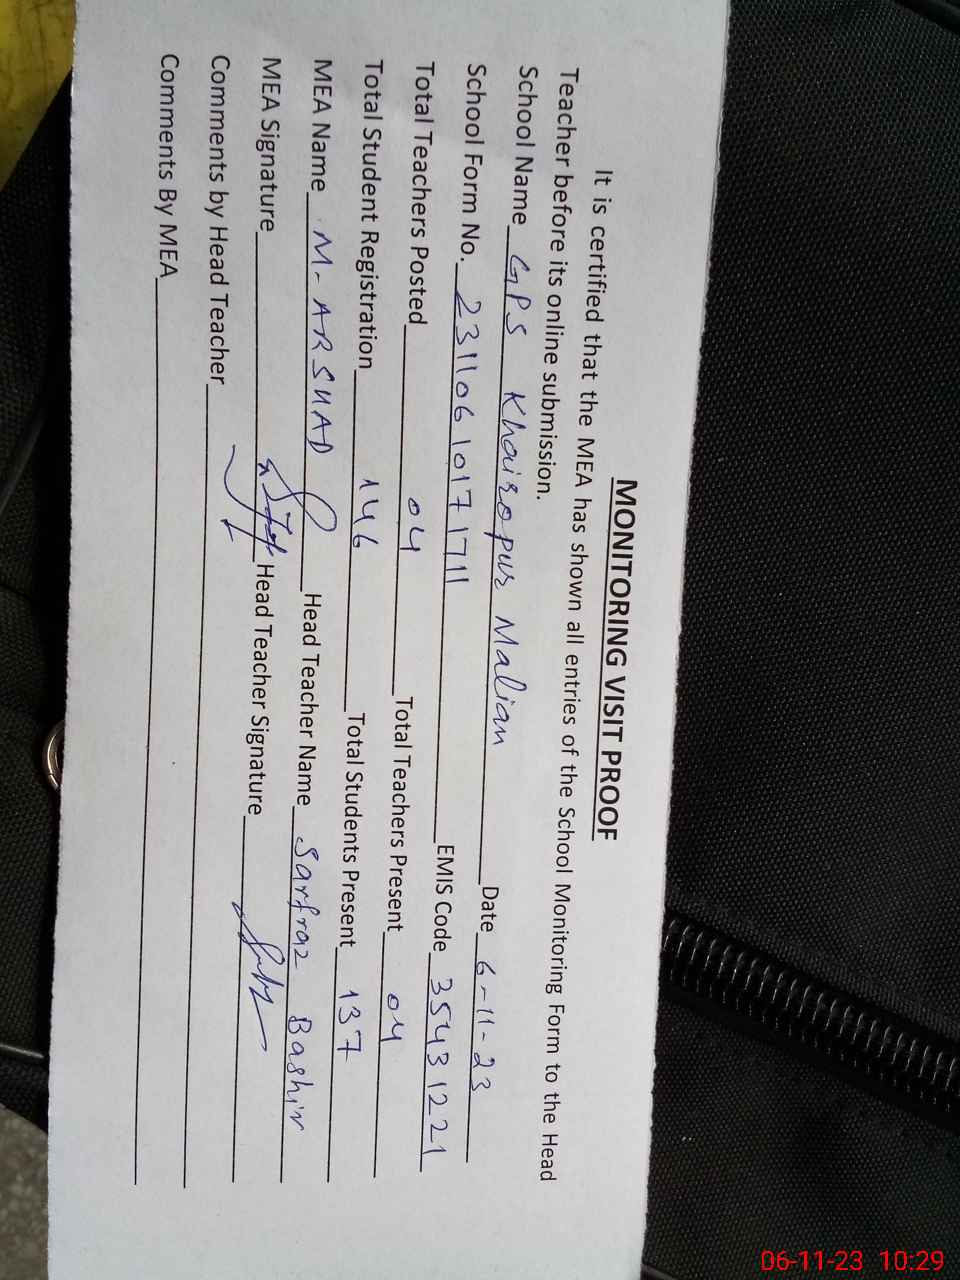 MONITORING VISIT PROOF
It is certified that the MEA has shown all entries of the School Monitoring Form to the Head
Teacher before its online submission.
School Name GPS Khairopur Malian Date 6-11-23
School Form No. 231106101717111 EMIS Code 35431221
Total Teachers Posted 04 Total Teachers Present 04
Total Student Registration 146 Total Students Present 137
MEA Name M-ARSHAD Head Teacher Name Sarfraz Bashir
MEA Signature Head Teacher Signature
Comments by Head Teacher
Comments By MEA
06-11-23 10:29